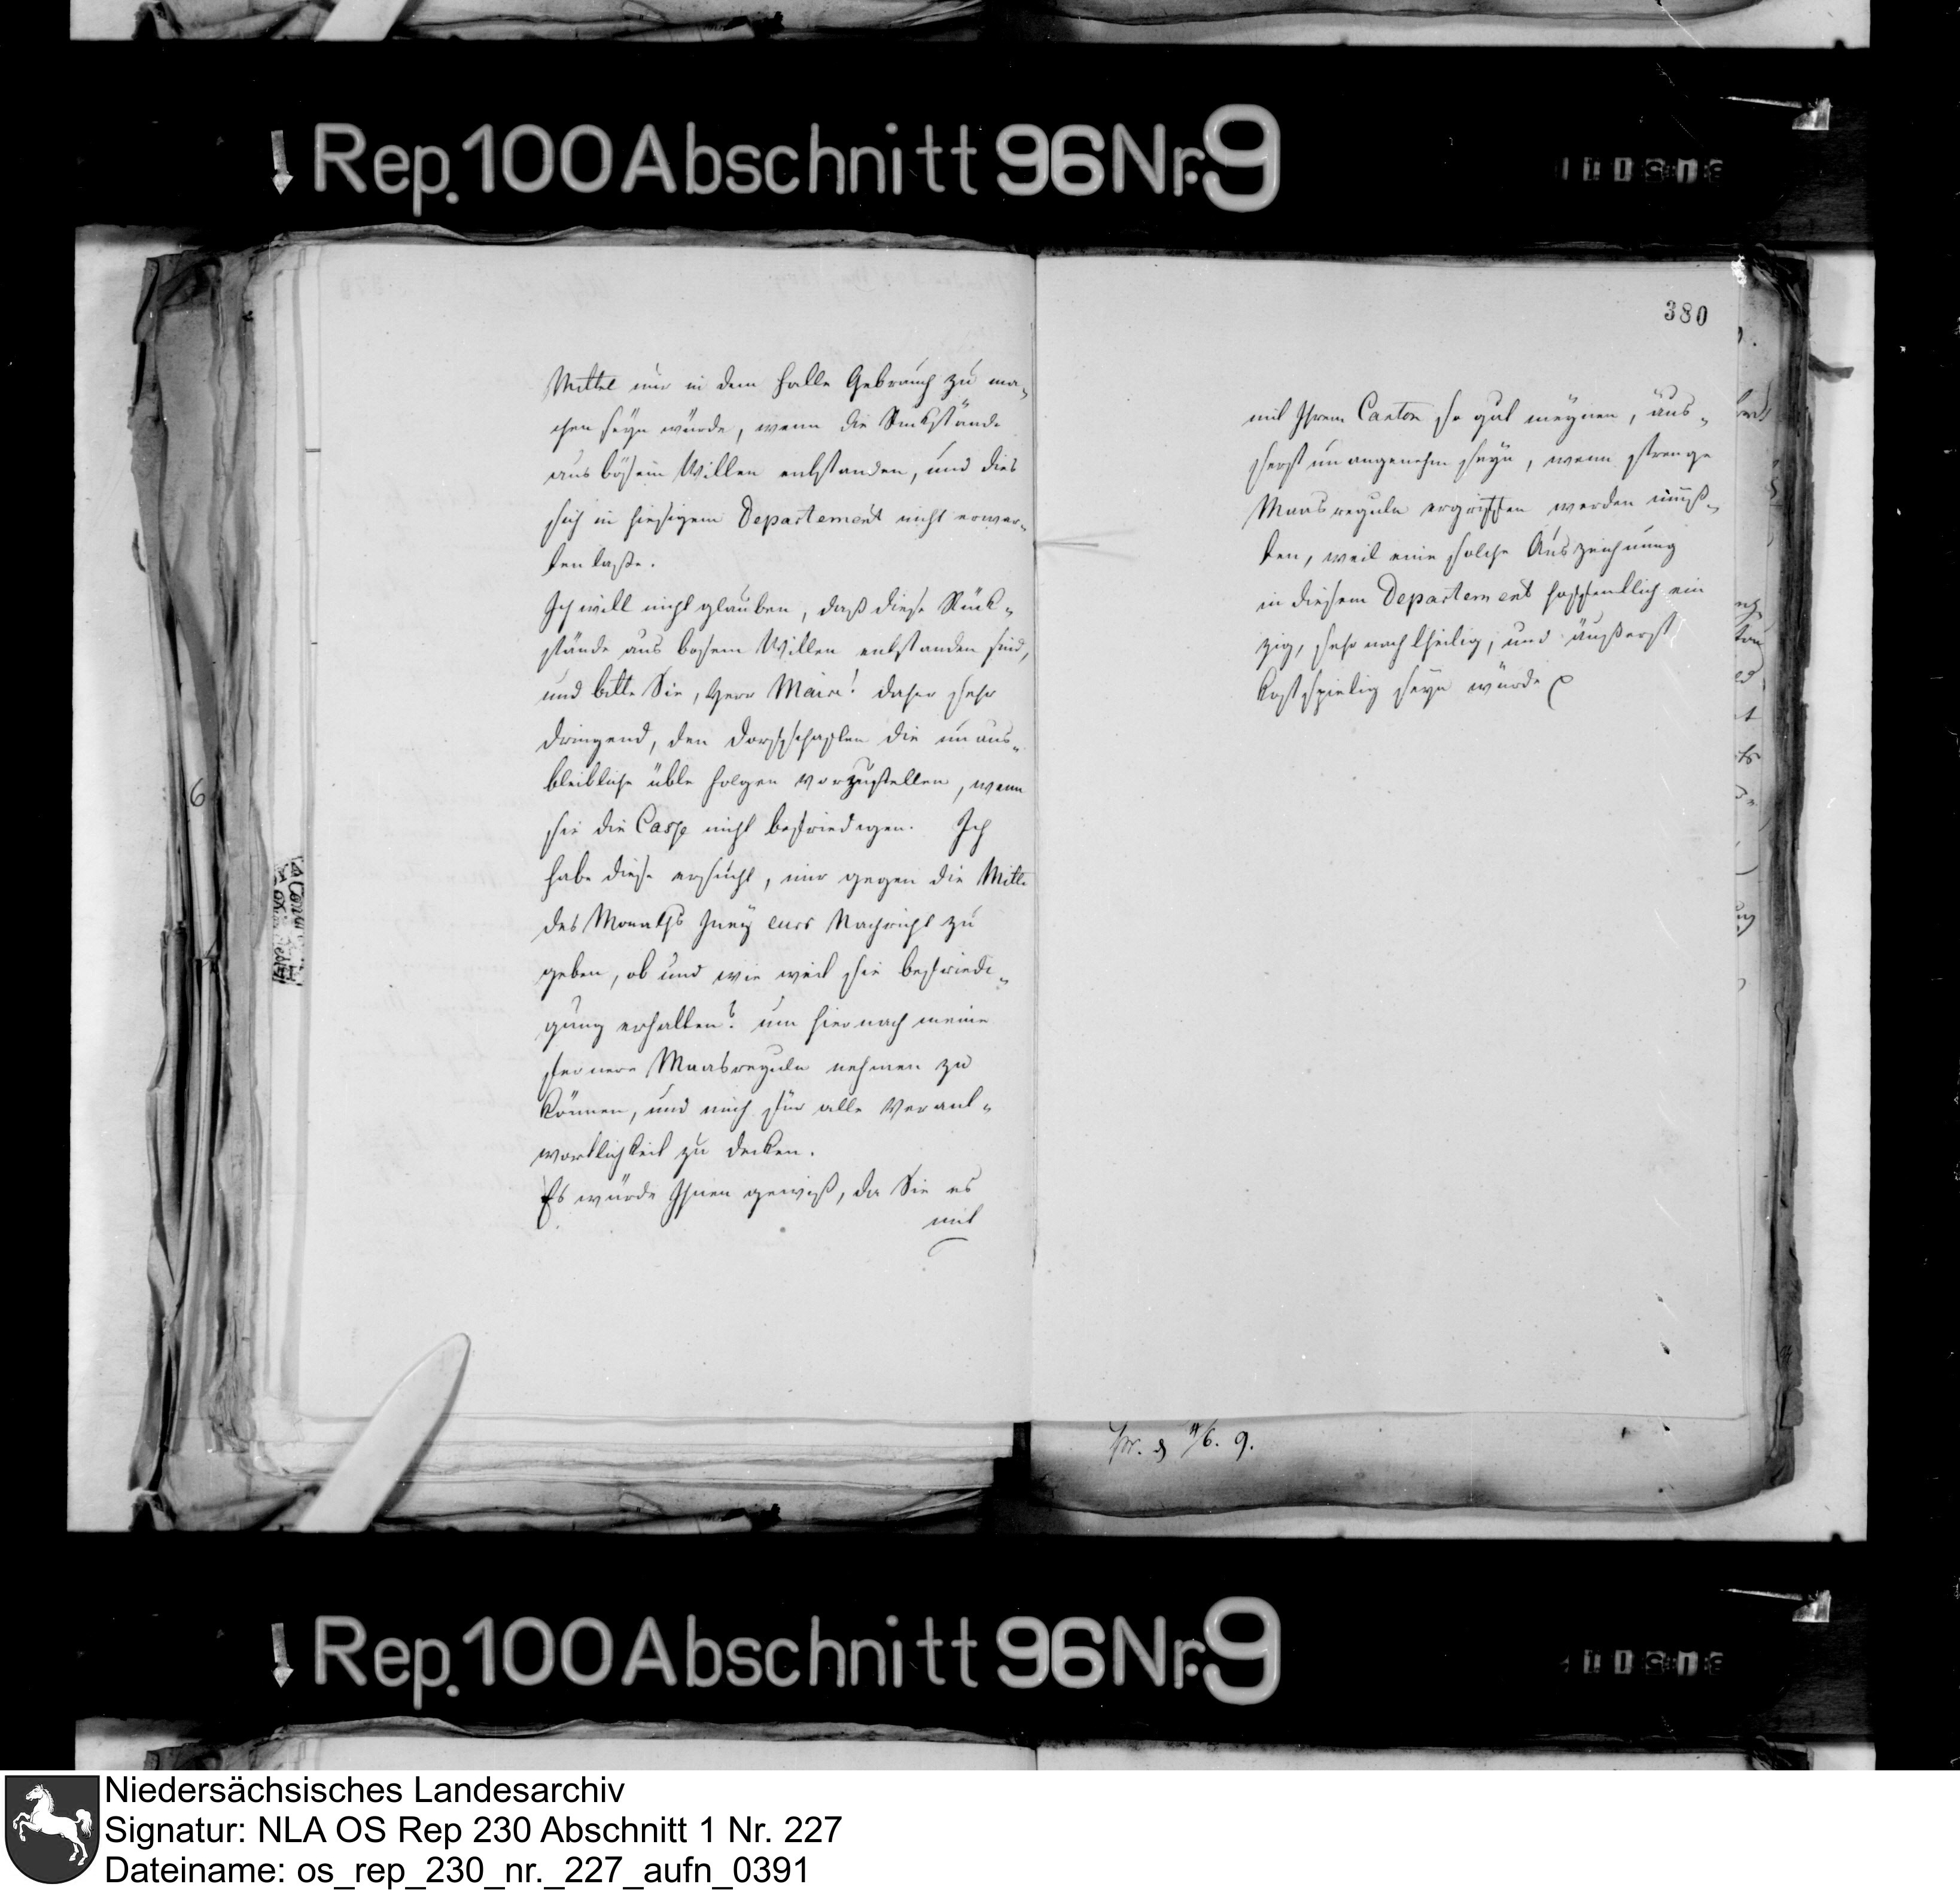 Rep. 100 Abschnitt 96 Nr. 9
Mittel nur in dem Falle Gebrauch zu ma„
chen seyn würde, wenn die Rückstände
aus bösem Willen entstanden, und dies
sich in hiesigem Departement nicht erwar„
ten laße.
Ich will nicht glauben, daß diese Rück„
stände aus bösem Willen entstanden sind,
und bitte Sie, Herr Maire! daher sehr
dringend, den Dorfschaften die unaus„
bleibliche üble Folgen vorzustellen, wenn
sie die Casse nicht befriedigen. Ich
habe diese ersucht, mir gegen die Mitte
des Monaths Juny Nachricht zu
geben, ob und wie weit sie befriedi„
gung erhalten? um hiernach meine
fernere Maasreguln nehmen zu
können, und mich für alle Verant„
wortlichkeit zu decken.
Es würde Ihnen gewiß, da Sie es
mit
380
mit Ihrem Canton so gut meynen, äus„
serst unangenehm seyn, wenn strenge
Maasreguln ergriffen werden müß„
ten, weil eine solche Auszeichnung
in diesem Departement hoffentlich ein
zig, sehr nachtheilig, und äußerst
kostspielig seyn würde
6. 9.
6
Rep. 100 Abschnitt 96 Nr. 9
Niedersächsisches Landesarchiv
Signatur: NLA OS Rep 230 Abschnitt 1 Nr. 227
Dateiname: os_rep_230_nr._227_aufn_0391